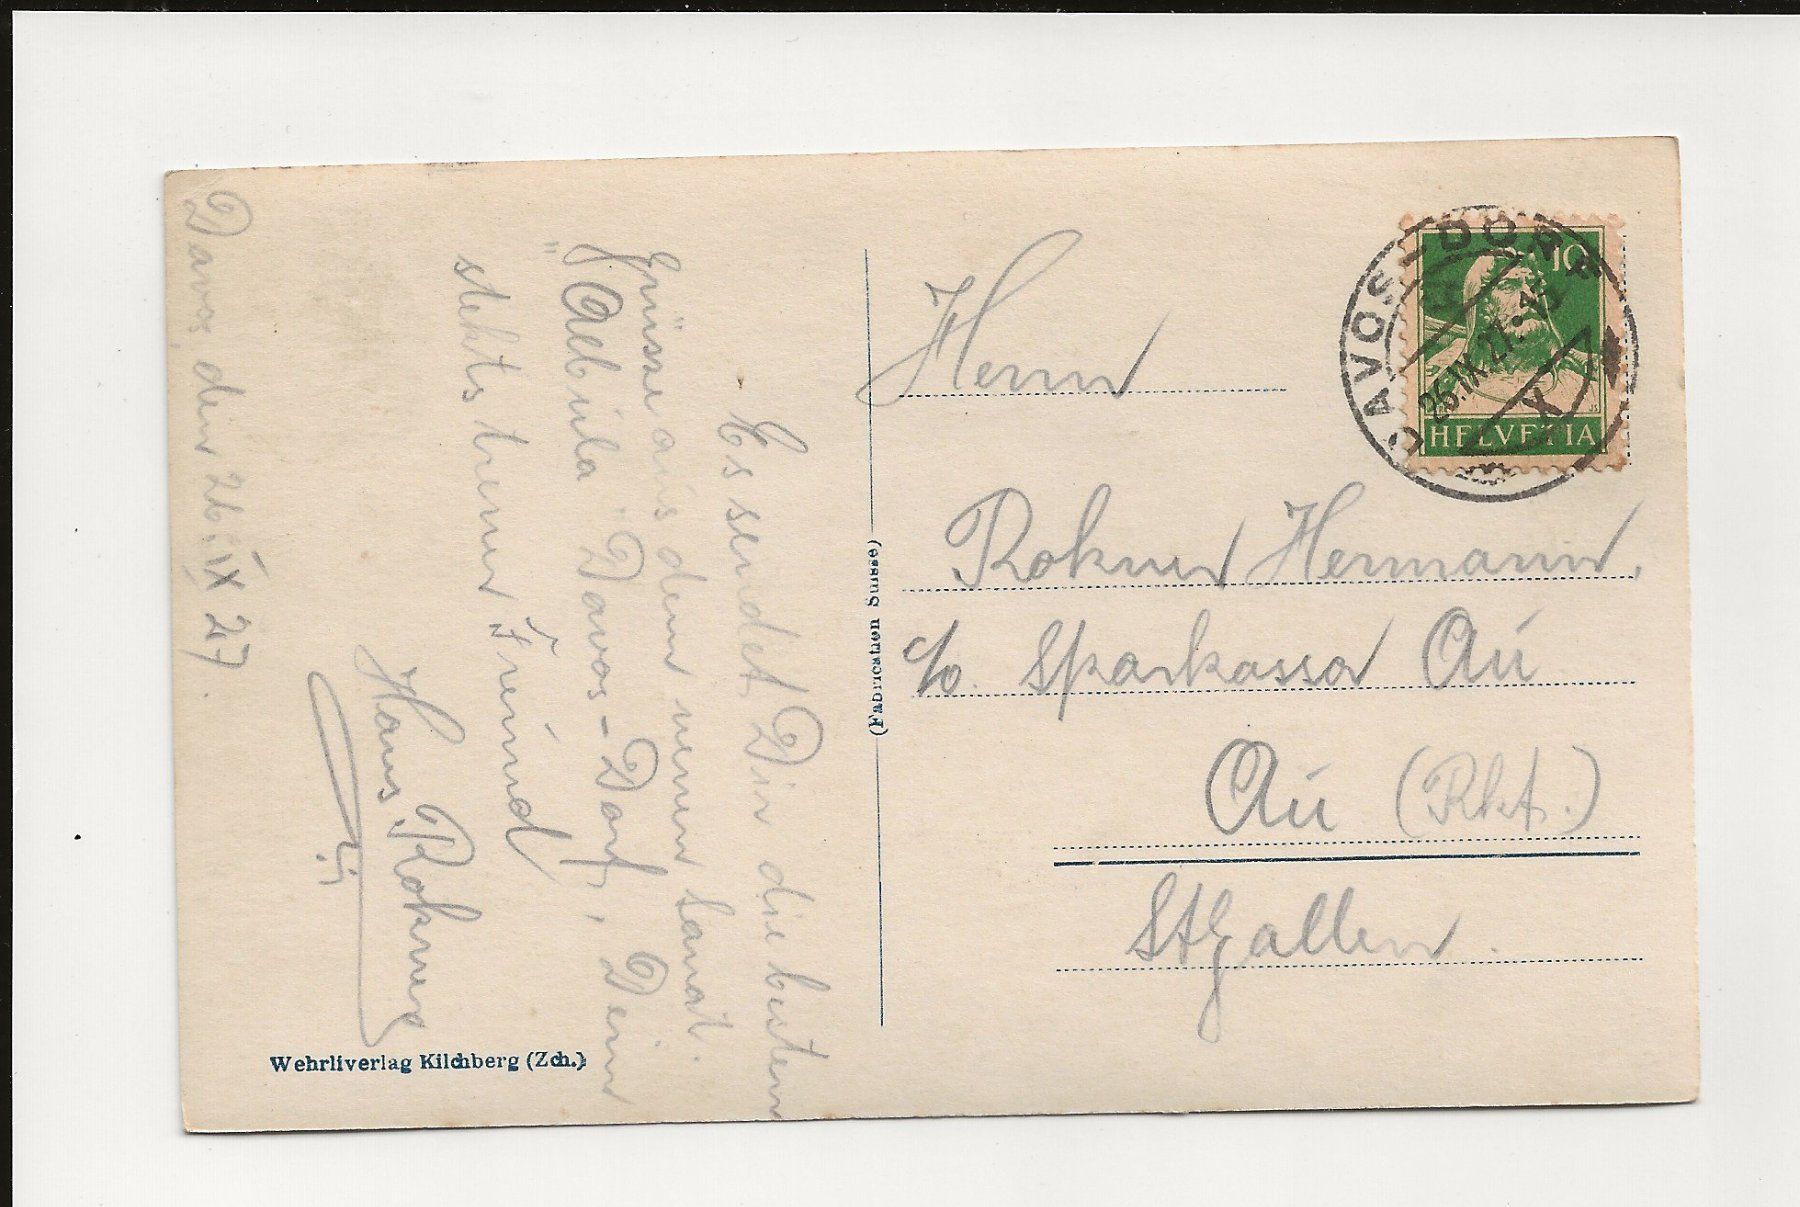 Davos, den 26. IX 27.
Es sendet Dir die besten
Grüsse aus dem neuen
"Aebüla" Davos-Dorf, Dein
stehts treuer Freund
Hans Rohner
(Fabrication Suisse)
Wehrliverlag Kilchberg (Zch.)
DAVOS-DORF
26.IX.27
X
10
HELVETIA
Herrn
Rohner Hermann.
c/o. Sparkassa Au
Au (Rht.)
St Gallen.